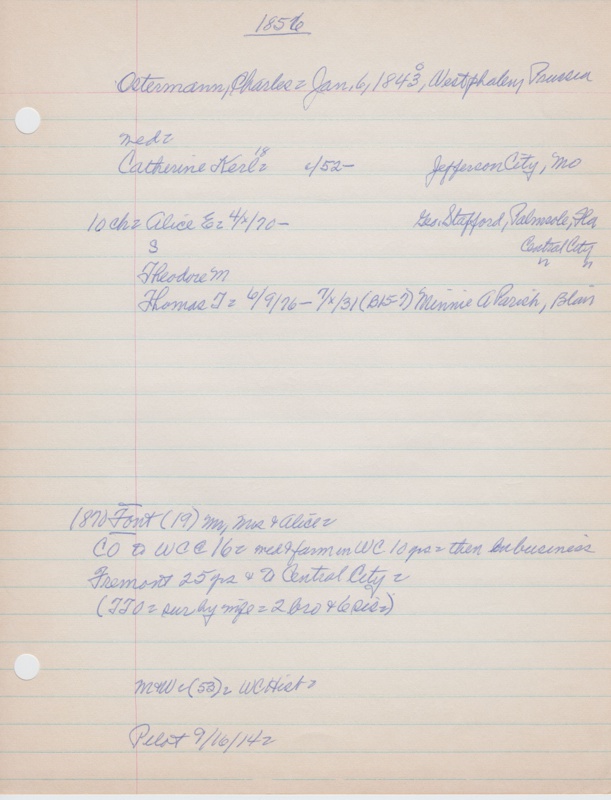 1856
Ostermann, Charles = Jan. 6, 1843, Westphalen, Prussia
med =
Catherine Kerl = 18 4/52- Jefferson City, Mo
10 ch = Alice E = 4/x/70 - Geo. Stafford, Palmsole, Fla
S Central City
Theodore M " "
Thomas J = 6/9/76 - 7/x/31 (B157) Minnie A Parish, Blair
1870 Font (19) Mr, Mrs & Alice =
CO to WCC 16 = med & farm in WC 10 yrs = then in business
Fremont 25 yrs & to Central City =
(TJO = sur by mge = 2 bro & 6 sis =)
M&W = (53) = WC Hist =
Pilot 9/16/14 =